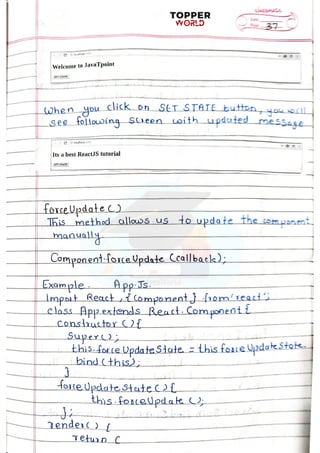 TOPPER
WORLD
classmate
Date
Page 37
Welcome to JavaTpoint
SET STATE
When you click on SET STATE button, you will
see following screen with updated message
Its a best ReactJS tutorial
SET STATE
forceUpdate()
This method allows us to update the component
manually.
Component.forceUpdate (callback);
Example. App.Js.
Import React, {Component} from 'react';
class App extends React.Component {
constructor () {
Super();
this.forceUpdateState = this.forceUpdateState.
bind (this);
}
forceUpdateState () {
this.forceUpdate ();
};
render() {
return (